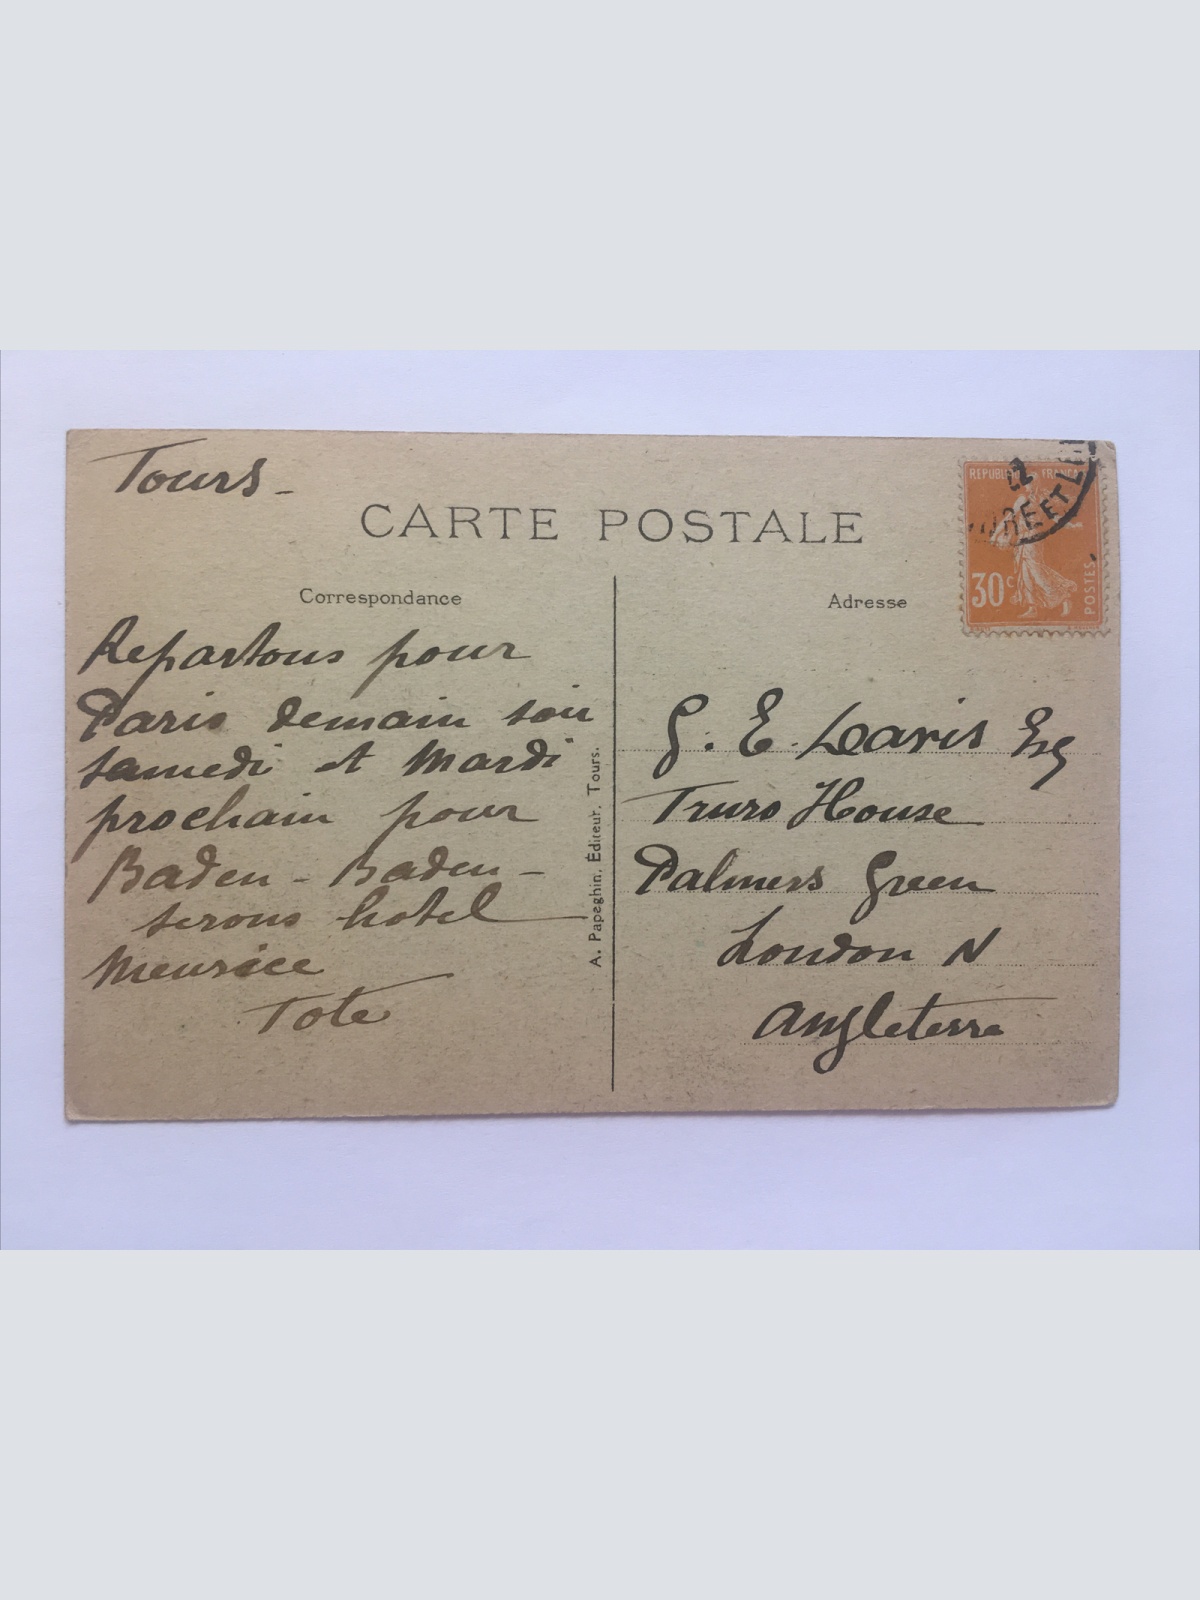 Tours -
CARTE POSTALE
Correspondance
Repartons pour
Paris demain soir
samedi et Mardi
prochain pour
Baden - Baden -
serons hotel
Meurice
Tote
A. Papeghin. Éditeur. Tours.
Adresse
REPUBLI FRANCA
30c
POSTES
22
RE ET L
G. E. Davis Esq
Truro House
Palmers Green
London N
Angleterre